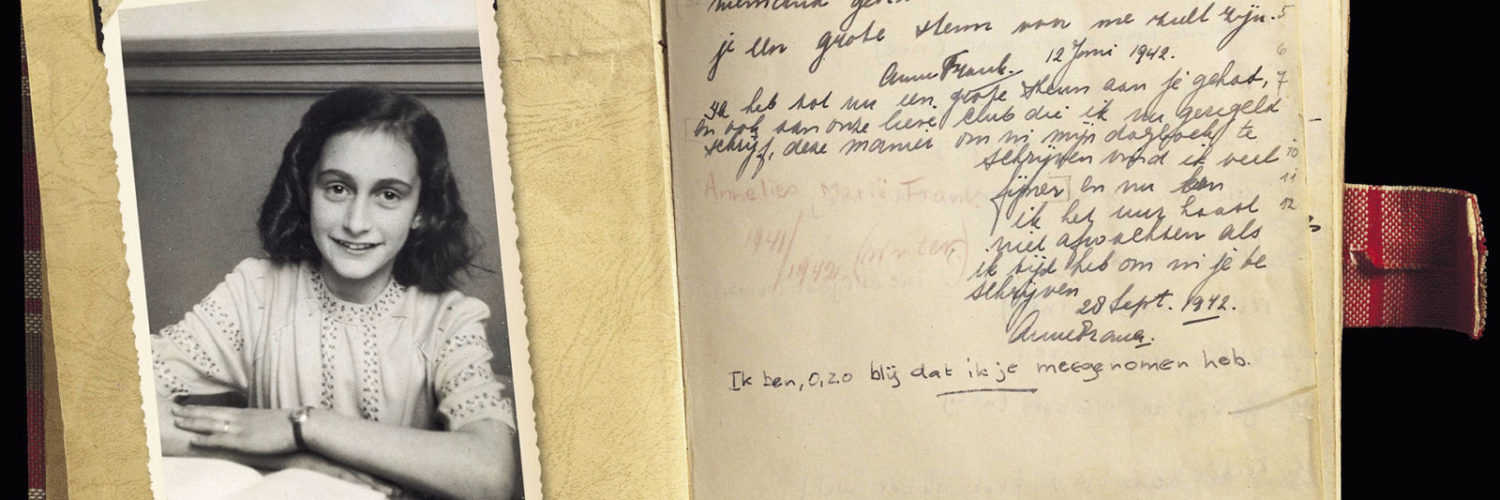 je een grote steun van me zult zijn. 5
6
Anne Frank. 12 Juni 1942.
Ik heb tot nu een grote steun aan je gehad, 7
en ook aan onze lieve club die ik nu geregeld
schrijf, deze manier om in mijn dagboek te
schrijven vind ik veel 10
fijner en nu kan 11
ik het uur haast 12
niet afwachten als
ik tijd heb om in je te
schrijven
28 Sept. 1942.
Anne Frank.
Annelies Marie Frank
1941/
/1942. (Winter)
Ik ben, O, zo blij dat ik je meegenomen heb.